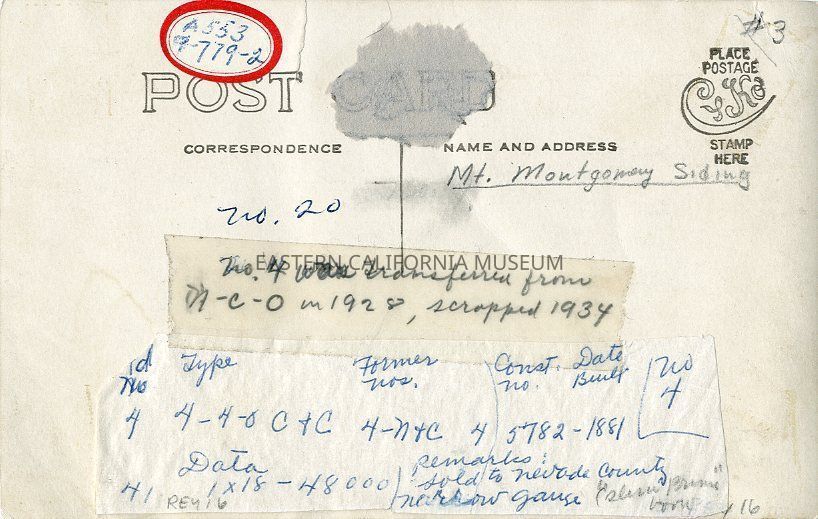 A553
9-779-2
#3
POST CARD
PLACE
POSTAGE
STAMP
HERE
CORRESPONDENCE
NAME AND ADDRESS
Mt. Montgomery Siding
no. 20
EASTERN CALIFORNIA MUSEUM
No. 4 was transferred from
N-C-O in 1928, scrapped 1934
rd No Type Former nos. Const. no. Date Built No 4
4 4-4-0 C+C 4-N+C 4 5782-1881
Data remarks:
41 1x18-48000 sold to nevada county
REY16 narrow gauge book 16